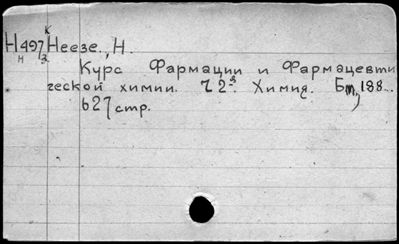 К
Н497 Неезе, Н.
Н 3
Курс Фармации и Фармацевти
ческой химии. Ч 2ª. Химия. Бт, 188..
627 стр.